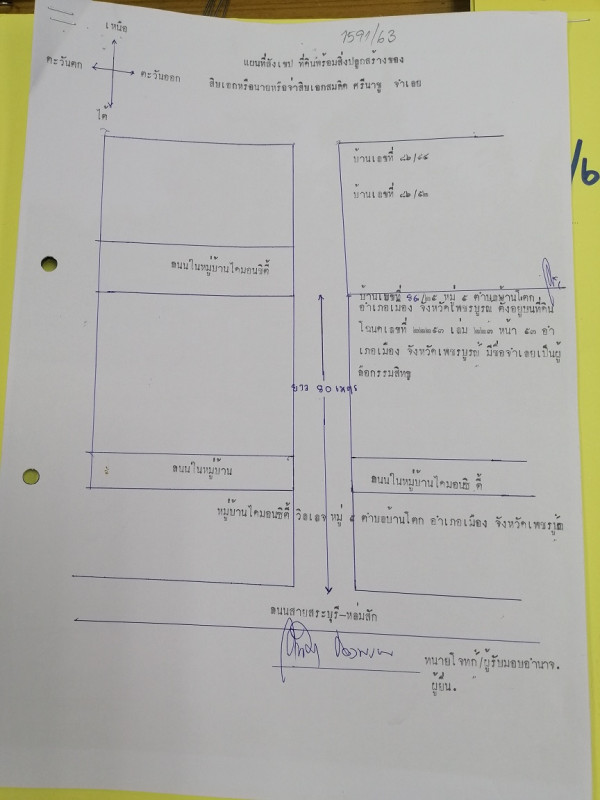 1591/63
เหนือ
ตะวันตก
ตะวันออก
ใต้
แผนที่สังเขป ที่ดินพร้อมสิ่งปลูกสร้างของ
สิบเอกหรือนายหรือจ่าสิบเอกสมคิด ศรีนาชู จำเลย
บ้านเลขที่ ๘๖/๔๔
บ้านเลขที่ ๘๖/๕๒
ถนนในหมู่บ้านไดมอนซิตี้
บ้านเลขที่ 86/๒๕ หมู่ ๕ ตำบลบ้านโตก
อำเภอเมือง จังหวัดเพชรบูรณ์ ตั้งอยู่บนที่ดิน
โฉนดเลขที่ ๒๒๒๕๓ เล่ม ๒๒๓ หน้า ๕๓ อำ
เภอเมือง จังหวัดเพชรบูรณ์ มีชื่อจำเลยเป็นผู้
ถือกรรมสิทธิ
ยาว 80 เมตร
ถนนในหมู่บ้าน
ถนนในหมู่บ้านไดมอนซิตี้
หมู่บ้านไดมอนซิตี้ วิลเลจ หมู่ ๕ ตำบลบ้านโตก อำเภอเมือง จังหวัดเพชรบูรณ์
ถนนสายสระบุรี-หล่มสัก
ทนายโจทก์/ผู้รับมอบอำนาจ.
ผู้ยื่น.